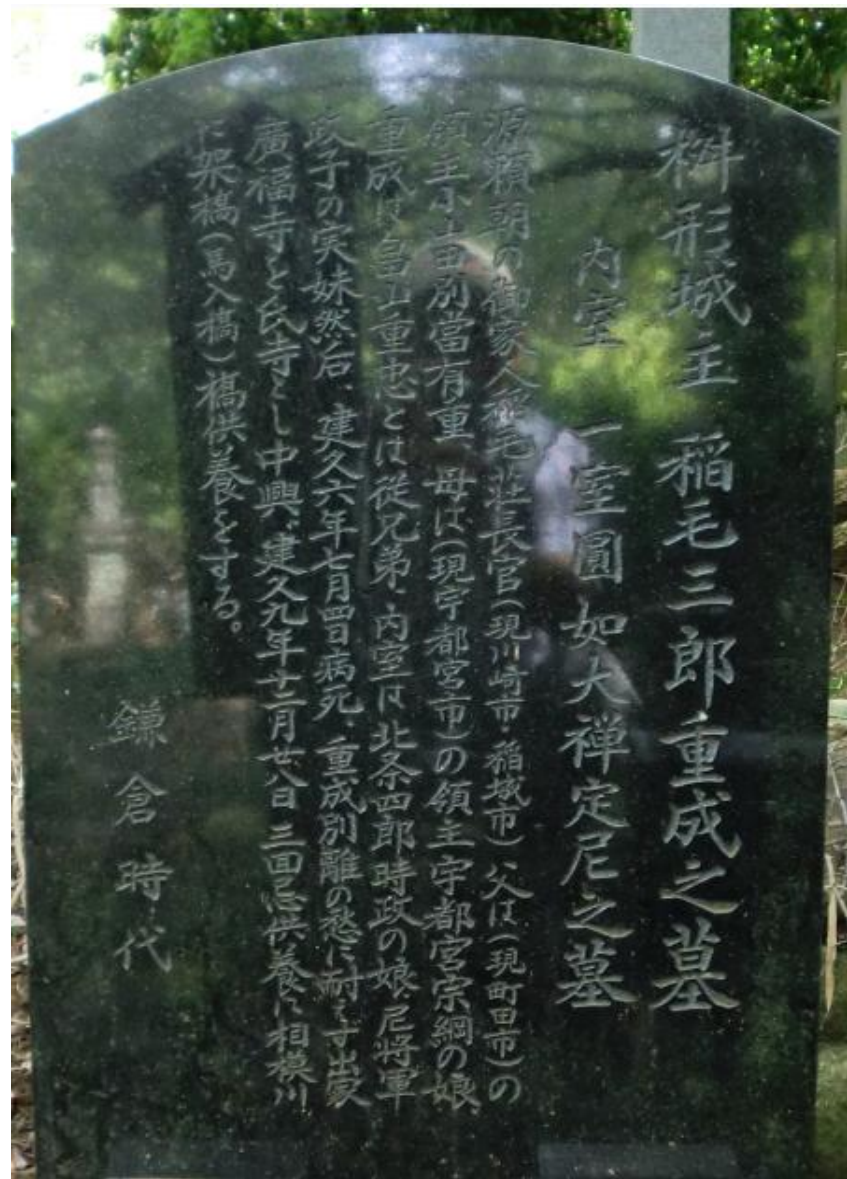 桝形城主 稲毛三郎重成之墓
内室 一室圓如大禅定尼之墓
源頼朝の御家人稲毛荘長官(現川崎市・稲城市)父は(現町田市)の
領主小山田別當有重、母は(現宇都宮市)の領主宇都宮宗綱の娘、
重成は畠山重忠とは従兄弟、内室は北条四郎時政の娘、尼将軍
政子の実妹然后、建久六年七月四日病死、重成別離の愁に耐えず出家
廣福寺を氏寺とし中興、建久九年十二月廿八日三回忌供養に相模川
に架橋(馬入橋)橋供養をする。
鎌倉時代